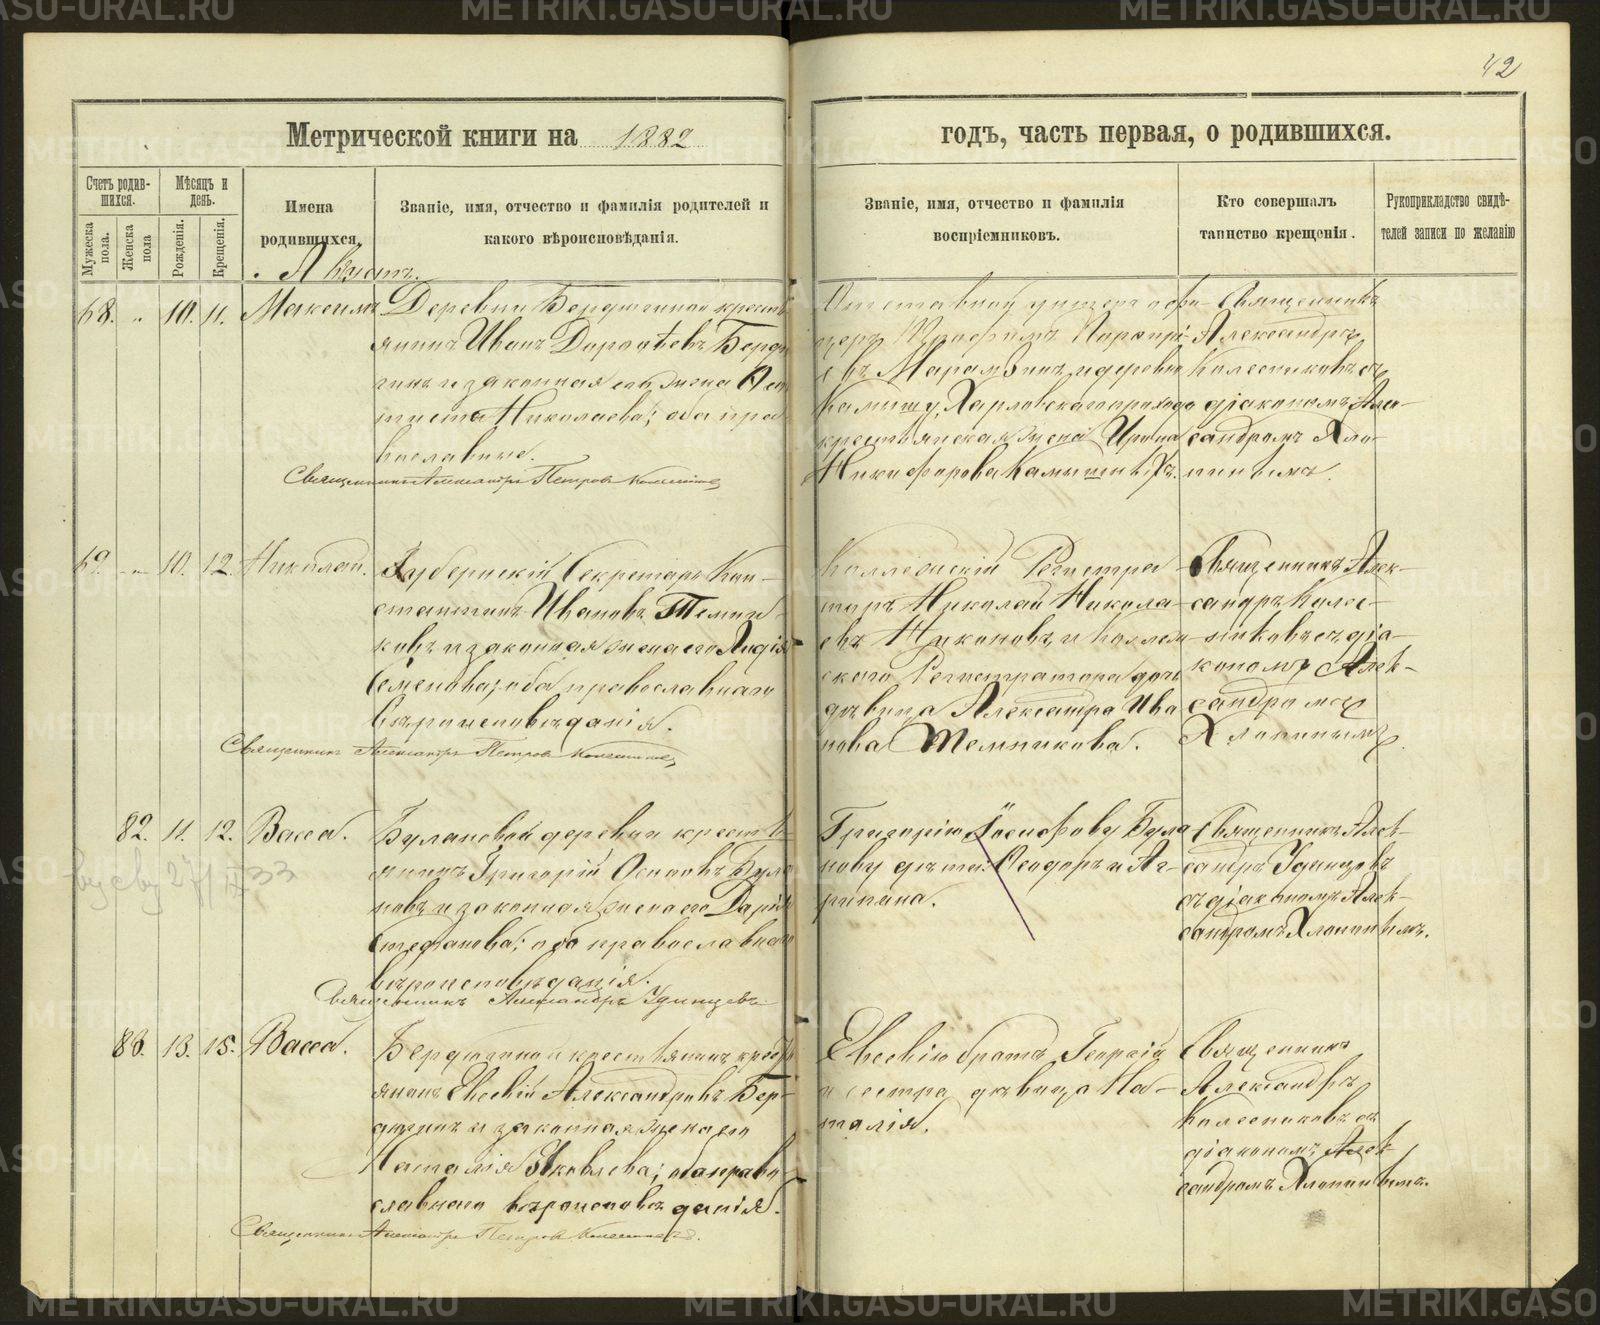 METRIKI.GASU-URAL.RU
42
Метрической книги на 1882
годъ, часть первая, о родившихся.
Счетъ родив-
шихся.
Мужеска пола.
Женска пола
Мѣсяцъ и
день.
Рожденія.
Крещенія.
Имена
родившихся.
Званіе, имя, отчество и фамилія родителей и
какого вѣроисповѣданія.
Званіе, имя, отчество и фамилія
воспріемниковъ.
Кто совершалъ
таинство крещенія.
Рукоприкладство свидѣ-
телей записи по желанію
Августъ.
68. " 10. 11. Максимъ
Деревни Бердюгиной кресть
янинъ Иванъ Дороѳеевъ Бердю
гинъ и законная его жена
Николаева; оба пра
вославные.
Священникъ Александръ Петровъ Колесников
Отставной унтеръ офи-
церъ Парфирі-
евъ и деревни
Камышу, Харловскаго прихода
крестьянская жена Ирина
Никифорова
Священникъ
Александръ
Колесниковъ съ
діакономъ Але-
ксандромъ Хло-
пинымъ.
69. " 10. 12. Николай.
Губернскій Секретарь Кон-
стантинъ Ивановъ Темни
ковъ и законная жена его Лидія
Семенова, оба православнаго
вѣроисповѣданія.
Священникъ Александръ Петровъ Колесников
Коллежскій Регистра-
торъ Николай Никола-
евъ Никоновъ и Коллеж-
скаго Регистратора дочь
дѣвица Александра Ива
нова Темникова.
Священникъ Алек-
сандръ Колес-
никовъ съ діа-
кономъ Алек-
сандромъ
Хлопинымъ
82. 11. 12. Васса.
Булановой деревни кресть
янинъ Григорій Осиповъ Була
новъ и законная жена его Дарія
Стефанова; оба православнаго
вѣроисповѣданія.
Священникъ Александръ Удинцевъ
Григорію Іосифову Була
нову дѣти: Ѳеодоръ и Аг-
рипина.
Священникъ Алек-
сандръ Удинцовъ
съ діакономъ Алек-
сандромъ Хлопинымъ.
83. 13. 15. Васса.
Бердюгиной крестьянинъ кресть
янинъ Евсевій Александровъ Бер-
дюгинъ и законная жена его
Наталія Яковлева; оба право-
славнаго вѣроисповѣданія.
Священникъ Александръ Петровъ Колесников
Евсевію братъ Георгій
и сестра дѣвица На-
талія.
Священникъ
Александръ
Колесниковъ съ
діакономъ Алек-
сандромъ Хлопинымъ.